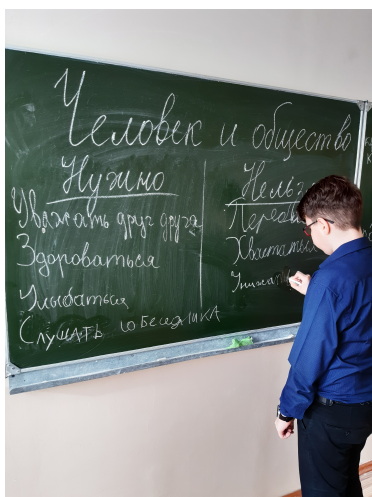 Человек и общество
Нужно
Уважать друг друга
Здороваться
Улыбаться
Слушать собеседника
Нельз
Переби
Хвастатьс
Унижат